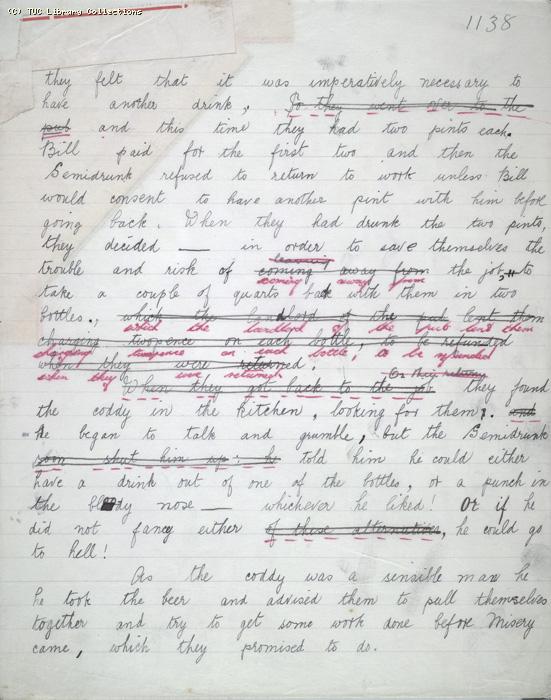 (C) TUC Library Collections
1138
they felt that it was imperatively necessary to
have another drink, So they went over to the
pub and this time they had two pints each.
Bill paid for the first two and then the
Semidrunk refused to return to work unless Bill
would consent to have another pint with him before
going back. When they had drunk the two pints,
they decided — in order to save themselves the
leaving
trouble and risk of coming away from the job, — to
coming away from
take a couple of quarts back with them in two
bottles., which the landlord of the pub lent them
which the landlord of the pub lent them
charging twopence on each bottle, to be refunded
charging twopence on each bottle, to be refunded
when they were returned.
when they were returned. On they return
When they got back to the job they found
the coddy in the kitchen, looking for them. and
He began to talk and grumble, but the Semidrunk
soon shut him up: he told him he could either
have a drink out of one of the bottles, or a punch in
the bloody nose — whichever he liked! Or if he
did not fancy either of these alternatives, he could go
to hell!
As the coddy was a sensible man he
he took the beer and advised them to pull themselves
together and try to get some work done before Misery
came, which they promised to do.